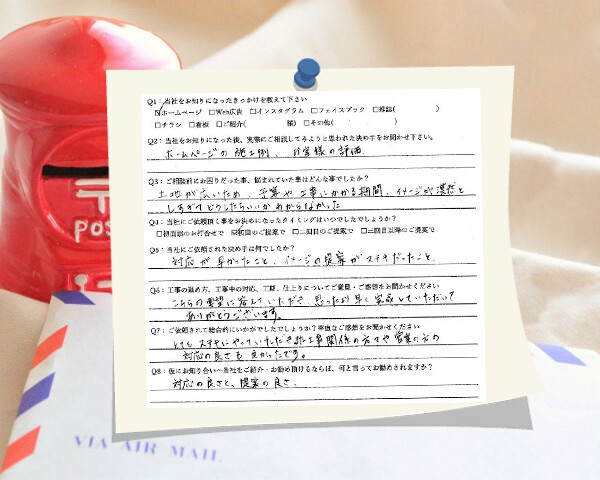 Q1：当社をお知りになったきっかけを教えて下さい
☑ホームページ □Web広告 □インスタグラム □フェイスブック □雑誌( )
□チラシ □看板 □ご紹介( 様) □その他(
Q2：当社をお知りになった後、実際にご相談してみようと思われた決め手をお聞かせ下さい。
ホームページの施工例、お客様の評価
Q3：ご相談前にお困りだった事、悩まれていた事はどんな事でしたか？
土地が広いため、予算や工事にかかる期間、イメージが漠然と
しすぎてどうしたらいいかわからなかった
Q4：当社にご依頼頂く事をお決めになったタイミングはいつでしたでしょうか？
□初回面のお打合せで ☑初回のご提案で □二回目のご提案で □三回目以降のご提案で
Q5：当社にご依頼された決め手は何でしたか？
対応が早かったこと、イメージの提案がステキだったこと、
Q6：工事の進め方、工事中の対応、工期、仕上りについてご意見・ご感想をお聞かせください
こちらの要望に答えていただき、思ったより早く完成していただいて
ありがとうございます。
Q7：ご依頼されて総合的にいかがでしたでしょうか？率直なご感想をお聞かせください
とてもステキにやっていただきました 工事関係の方々や営業の方の
対応の良さも良かったです。
Q8：仮にお知り合いへ当社をご紹介・お勧め頂けるならば、何と言ってお勧めされますか？
対応の良さと、提案の良さ、
〒
POS
VIA AIR MAIL